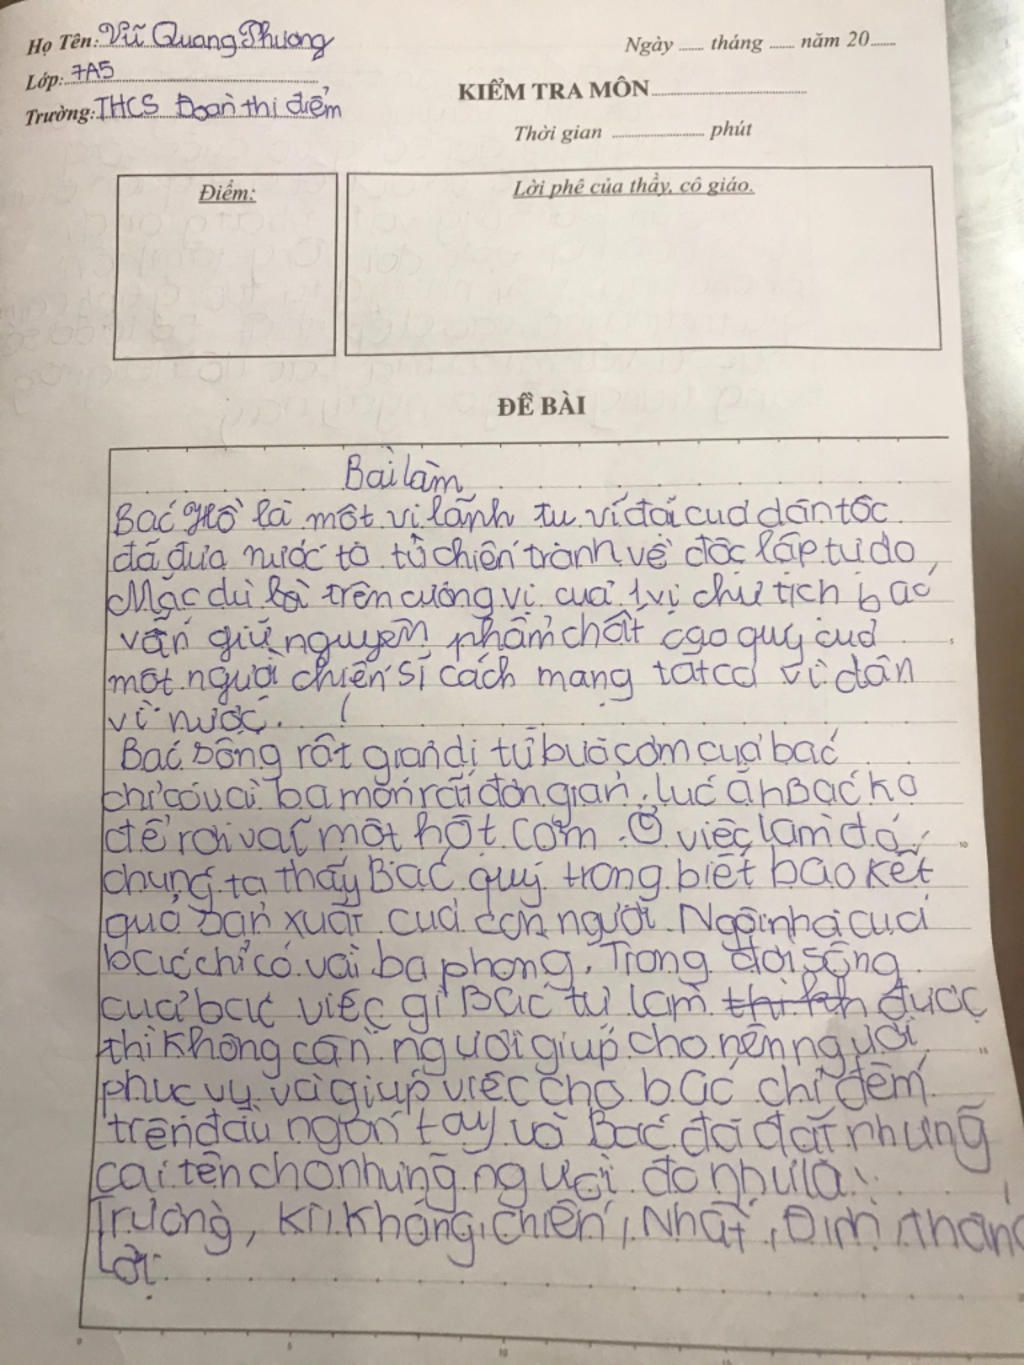 Họ Tên: Vũ Quang Phương
Ngày ...... tháng ...... năm 20......
Lớp: 7A5
KIỂM TRA MÔN
Trường: THCS Đoàn thị điểm
Thời gian ...... phút
Điểm:
Lời phê của thầy, cô giáo.
ĐỀ BÀI
Bài làm
Bác Hồ là một vị lãnh tụ vĩ đại của dân tộc
đã đưa nước ta từ chiến tranh về độc lập tự do,
Mặc dù là trên cương vị của 1 vị chủ tịch bác
vẫn giữ nguyên phẩm chất cao quý của
một người chiến sĩ cách mạng tất cả vì dân
vì nước.
Bác sống rất giản dị từ bữa cơm của bác
chỉ có vài ba món rất đơn giản, lúc ăn Bác ko
để rơi vãi một hột cơm. Ở việc làm đó
chúng ta thấy Bác quý trọng biết bao kết
quả sản xuất của con người. Ngôi nhà của
bác chỉ có vài ba phòng. Trong đời sống
của bác việc gì Bác tự làm được
thì không cần người giúp cho nên người
phục vụ và giúp việc cho bác chỉ đếm
trên đầu ngón tay và Bác đã đặt những
cái tên cho những người đó như là:
Trường, Kì, Kháng, Chiến, Nhất, Định, Thắng
Lợi.